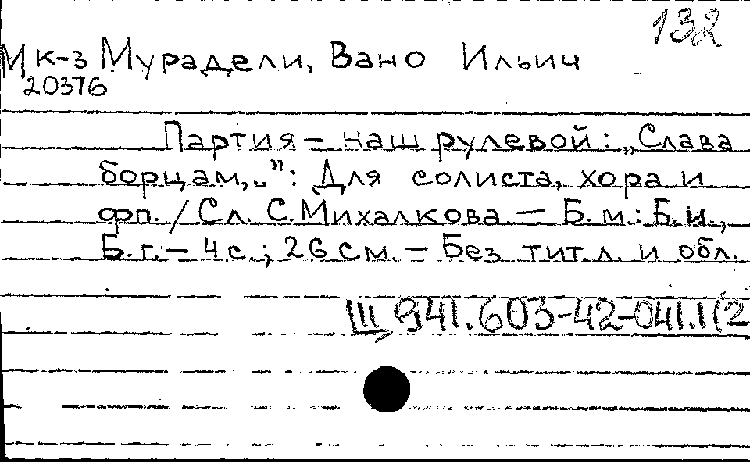 132
Мк-з Мурадели, Вано Ильич
20376
Партия – наш рулевой: „Слава
борцам,..”: Для солиста, хора и
фп. / Сл. С. Михалкова — Б. м.: Б. и.,
Б. г. – 4 с.; 26 см. – Без тит. л. и обл.
III 941.603-42-041.1(2